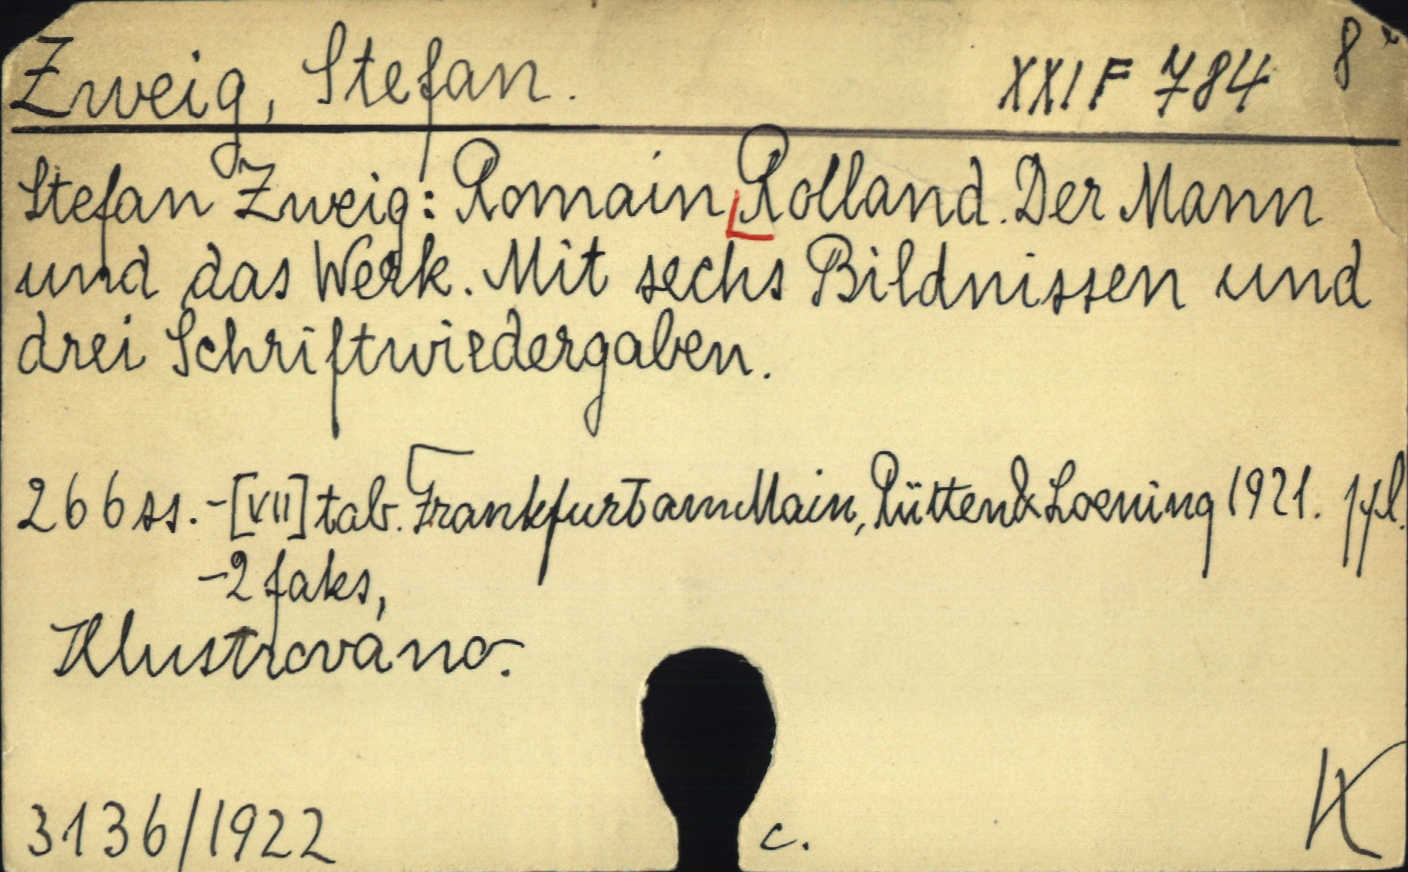 Zweig, Stefan. XXI F 784 8°
Stefan Zweig: Romain Rolland. Der Mann
und das Werk. Mit sechs Bildnissen und
drei Schriftwiedergaben.
266 ss. - [VII] tab. Frankfurt am Main, Rütten & Loening 1921. ppl.
- 2 faks,
Illustrováno.
3136/1922 c. K